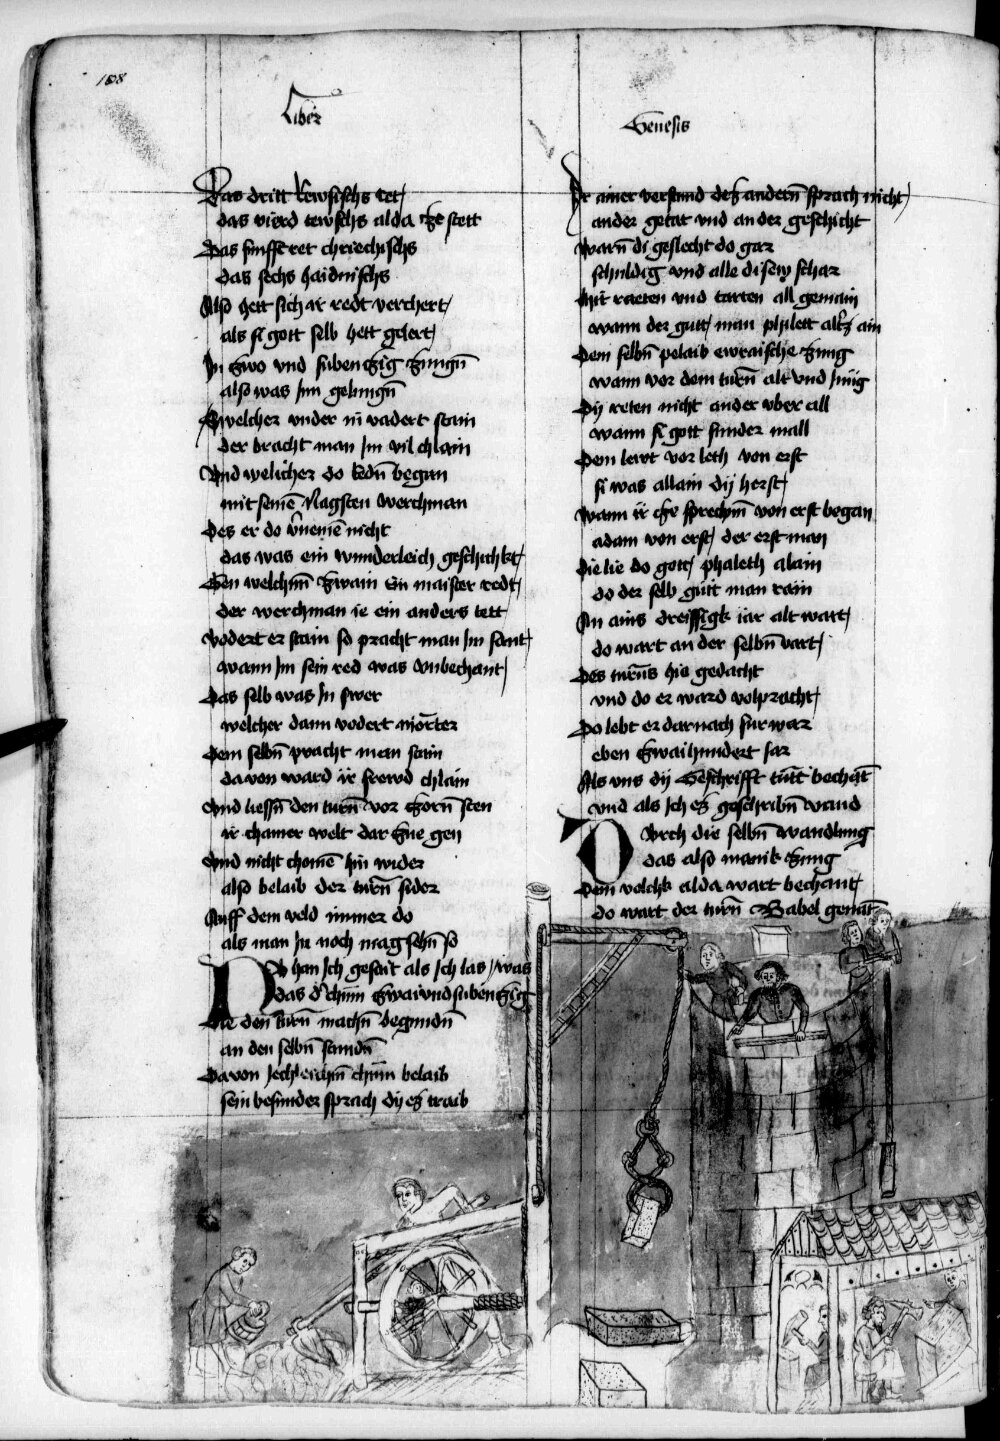 188
Liber
Genesis
Das dritt kewsischs tet
das vierd tewschs alda ze stett
Das funfft ret chriechischs
das sechs haidnischs
Also hett sich ir redt verchert
als si gott selb hett gelert
In zwo und sibenczig zungn̄
also was im gelungn̄
Swelcher under in vadert stain
der bracht man im vil chlain
Und welicher do redn̄ began
mit seinē nagsten werchman
Des er do v̄nemē nicht
das was ein wunderleich geschicht
Den welchm̄ zwain ein maister redt
der werchman ie ein anders tett
Vodert er stain so pracht man im sant
wann im sein red was unbechant
Das selb was in swer
welcher dann vodert mor̄ter
Dem selbn̄ pracht man stain
davon ward ir frewd chlain
Und liessn̄ den turn̄ vor zorn̄ sten
ir chainer welt dar zue gen
Und nicht chomē hin wider
also belaib der turn̄ sider
Auff dem veld immer do
als man in noch mag sehn̄ so
Nv han ich gesait als ich las was
das d' chūn zwai und sibenczig
Die den turn̄ machn̄ begundn̄
an den selbn̄ stundn̄
Davon iechleichm̄ chūn belaib
sein besunder sprach dy ez traib
Ir ainer verstund dez andern̄ sprach nicht
ander getat und an der geschicht
Warn̄ di geslecht do gar
schuldig und alle disew schar
Mit raeten und tatten all gemain
wann der gutt man philett altz ain
Dem selbn̄ pelaib ewraische zung
wann vor dem turn̄ alt und iūg
Dy reten nicht ander uber all
wann si gott sunder mall
Dem lewt vor leth von erst
si was allain dy herst
Wann ir ze sprechn̄ von erst began
adam von erst der erst man
Die lie do gott phaleth alain
do der selb gutt man rain
An ains dreissigk iar alt wart
do wart an der selbn̄ vart
Des turn̄s hie gedacht
und do er ward volpracht
Do lebt er darnach fur war
eben zwaihundert iar
Als uns dy geschrifft tutt bechāt
und als ich ez geschribn̄ vand
Durch die selbn̄ wandlung
das also manik zung
Dem volchk alda wart bechant
do wart der turn̄ Babel genāt